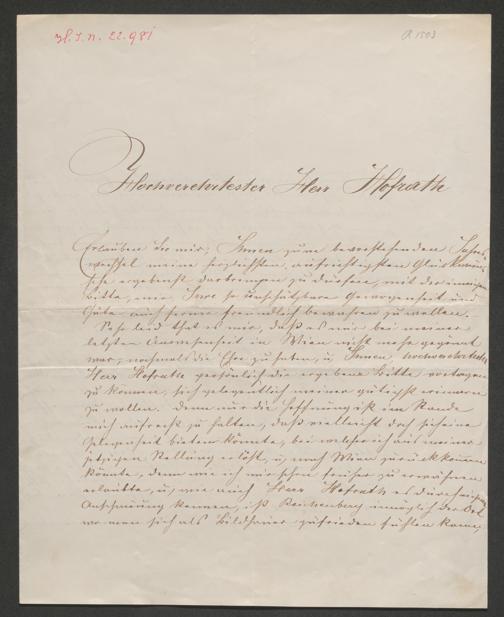 H. I. n. 22.981
Hochverehrtester Herr Hofrath
Erlauben Sie mir, Ihnen zum bevorstehenden Jahres
wechsel meine herzlichsten, aufrichtigsten Glückwün-
sche ergebenst darbringen zu dürfen, mit der innigen
Bitte, mir Ihre so unschätzbare Gewogenheit und
Güte auch ferner freundlich bewahren zu wollen.
Sehr leid that es mir, daß es mir bei meiner
letzten Anwesenheit in Wien nicht mehr gegönnt
war, nochmals die Ehre zu haben, u. Ihnen hochverehrtester
Herr Hofrath persönlich die ergebene Bitte vortragen
zu können, sich gelegentlich meiner gütigst erinnern
zu wollen. Denn nur die Hoffnung ist im Stande
mich aufrecht zu halten, daß vielleicht doch sich eine
Gelegenheit bieten könnte, bei welcher ich aus meiner
jetzigen Stellung erlöst, u. nach Wien zurückkommen
könnte, denn wie ich mir schon früher zu erwähnen
erlaubte, u. wie auch Herr Hofrath es durch eigene
Anschauung kennen, ist Reichenberg unmöglich der Ort
wo man sich als Bildhauer zufrieden fühlen kann,